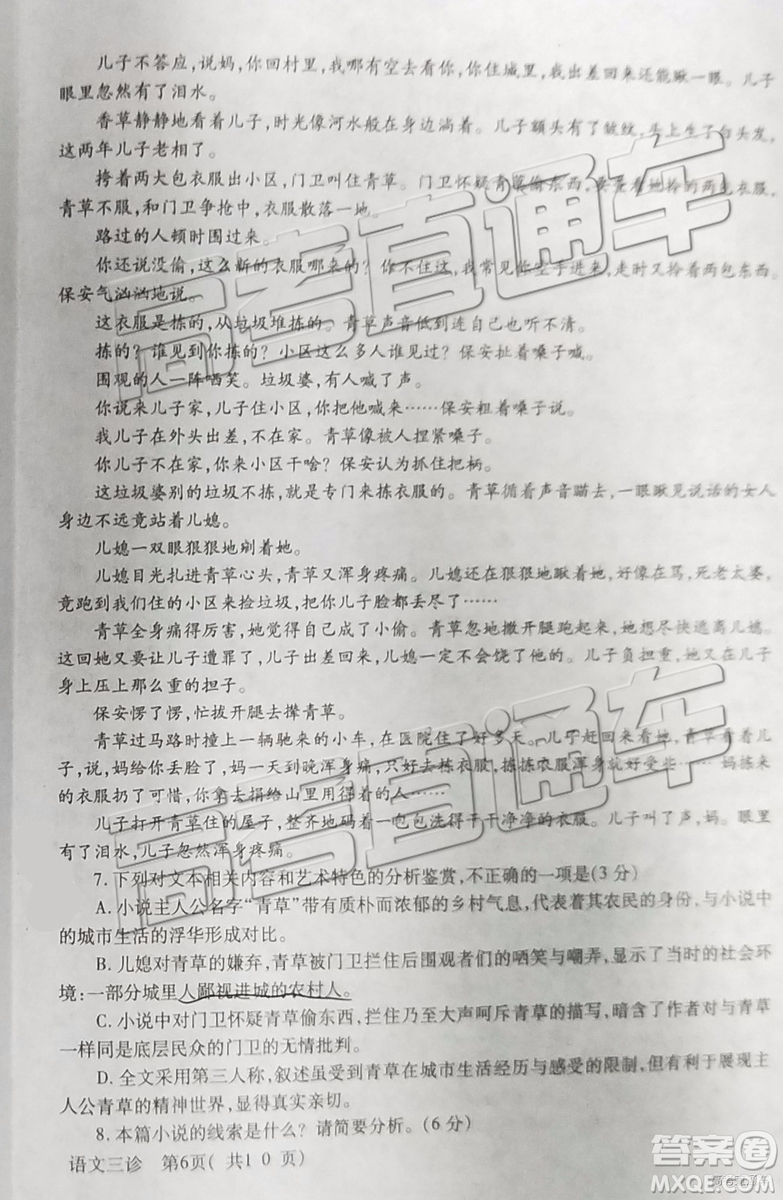 儿子不答应，说妈，你回村里，我哪有空去看你，你住城里，我出差回来还能瞅一眼。儿子
眼里忽然有了泪水。
香草静静地看着儿子，时光像河水般在身边淌着。儿子额头有了皱纹，头上生了白头发，
这两年儿子老相了。
挎着两大包衣服出小区，门卫叫住青草。门卫怀疑青草偷东西，要查看她拎的两包衣服，
青草不服，和门卫争抢中，衣服散落一地。
路过的人顿时围过来。
你还说没偷，这么新的衣服哪来的？你不住这，我常见你空手进来，走时又拎着两包东西。
保安气汹汹地说。
这衣服是拣的，从垃圾堆拣的。青草声音低到连自己也听不清。
拣的？谁见到你拣的？小区这么多人谁见过？保安扯着嗓子喊。
围观的人一阵哂笑。垃圾婆，有人喊了声。
你说来儿子家，儿子住小区，你把他喊来……保安粗着嗓子说。
我儿子在外头出差，不在家。青草像被人捏紧嗓子。
你儿子不在家，来小区干啥？保安认为抓住把柄。
这垃圾婆别的垃圾不拣，就是专门来拣衣服的。青草循着声音瞄去，一眼瞅见说话的女人
身边不远竟站着儿媳。
儿媳一双眼狠狠地剜着她。
儿媳目光扎进青草心头，青草又浑身疼痛。儿媳还在狠狠地瞅着她，好像在骂，死老太婆，
竟跑到我们住的小区来捡垃圾，把你儿子脸都丢尽了……
青草全身痛得厉害，她觉得自己成了小偷。青草忽地撒开腿跑起来，她想尽快逃离儿媳。
这回她又要让儿子遭罪了，儿子出差回来，儿媳一定不会饶了他的。儿子负担重，她又在儿子
身上压上那么重的担子。
保安愣了愣，忙拔开腿去撵青草。
青草过马路时撞上一辆驰来的小车，在医院住了好多天。儿子赶回来看她，
是，说，妈给你丢脸了，妈一天到晚浑身疼痛，只有起来拣衣服，拣拣衣服浑身就好受些……妈拣来
的衣服扔了可惜，你拿去捐给山里用得着的人……
儿子打开青草住的屋子，整齐地码着一包包洗得干干净净的衣服。儿子叫了声，妈。眼里
有了泪水，儿子忽然浑身疼痛。
7. 下列对文本相关内容和艺术特色的分析鉴赏，不正确的一项是(3 分)
A. 小说主人公名字“青草”带有质朴而浓郁的乡村气息，代表着其农民的身份，与小说中
的城市生活的浮华形成对比。
B. 儿媳对青草的嫌弃，青草被门卫拦住后围观者们的哂笑与嘲弄，揭示了当时的社会环
境：一部分城里人鄙视进城的农村人。
C. 小说中对门卫怀疑青草偷东西，拦住乃至大声呵斥青草的描写，暗含了作者对与青草
一样同是底层民众的门卫的无情批判。
D. 全文采用第三人称，叙述虽受到青草在城市生活经历与感受的限制，但有利于展现主
人公青草的精神世界，显得真实亲切。
8. 本篇小说的线索是什么？请简要分析。(6 分)
语文三诊 第6页( 共1 0 页)
高考直通车
高考直通车
答案圈
MXQE.COM